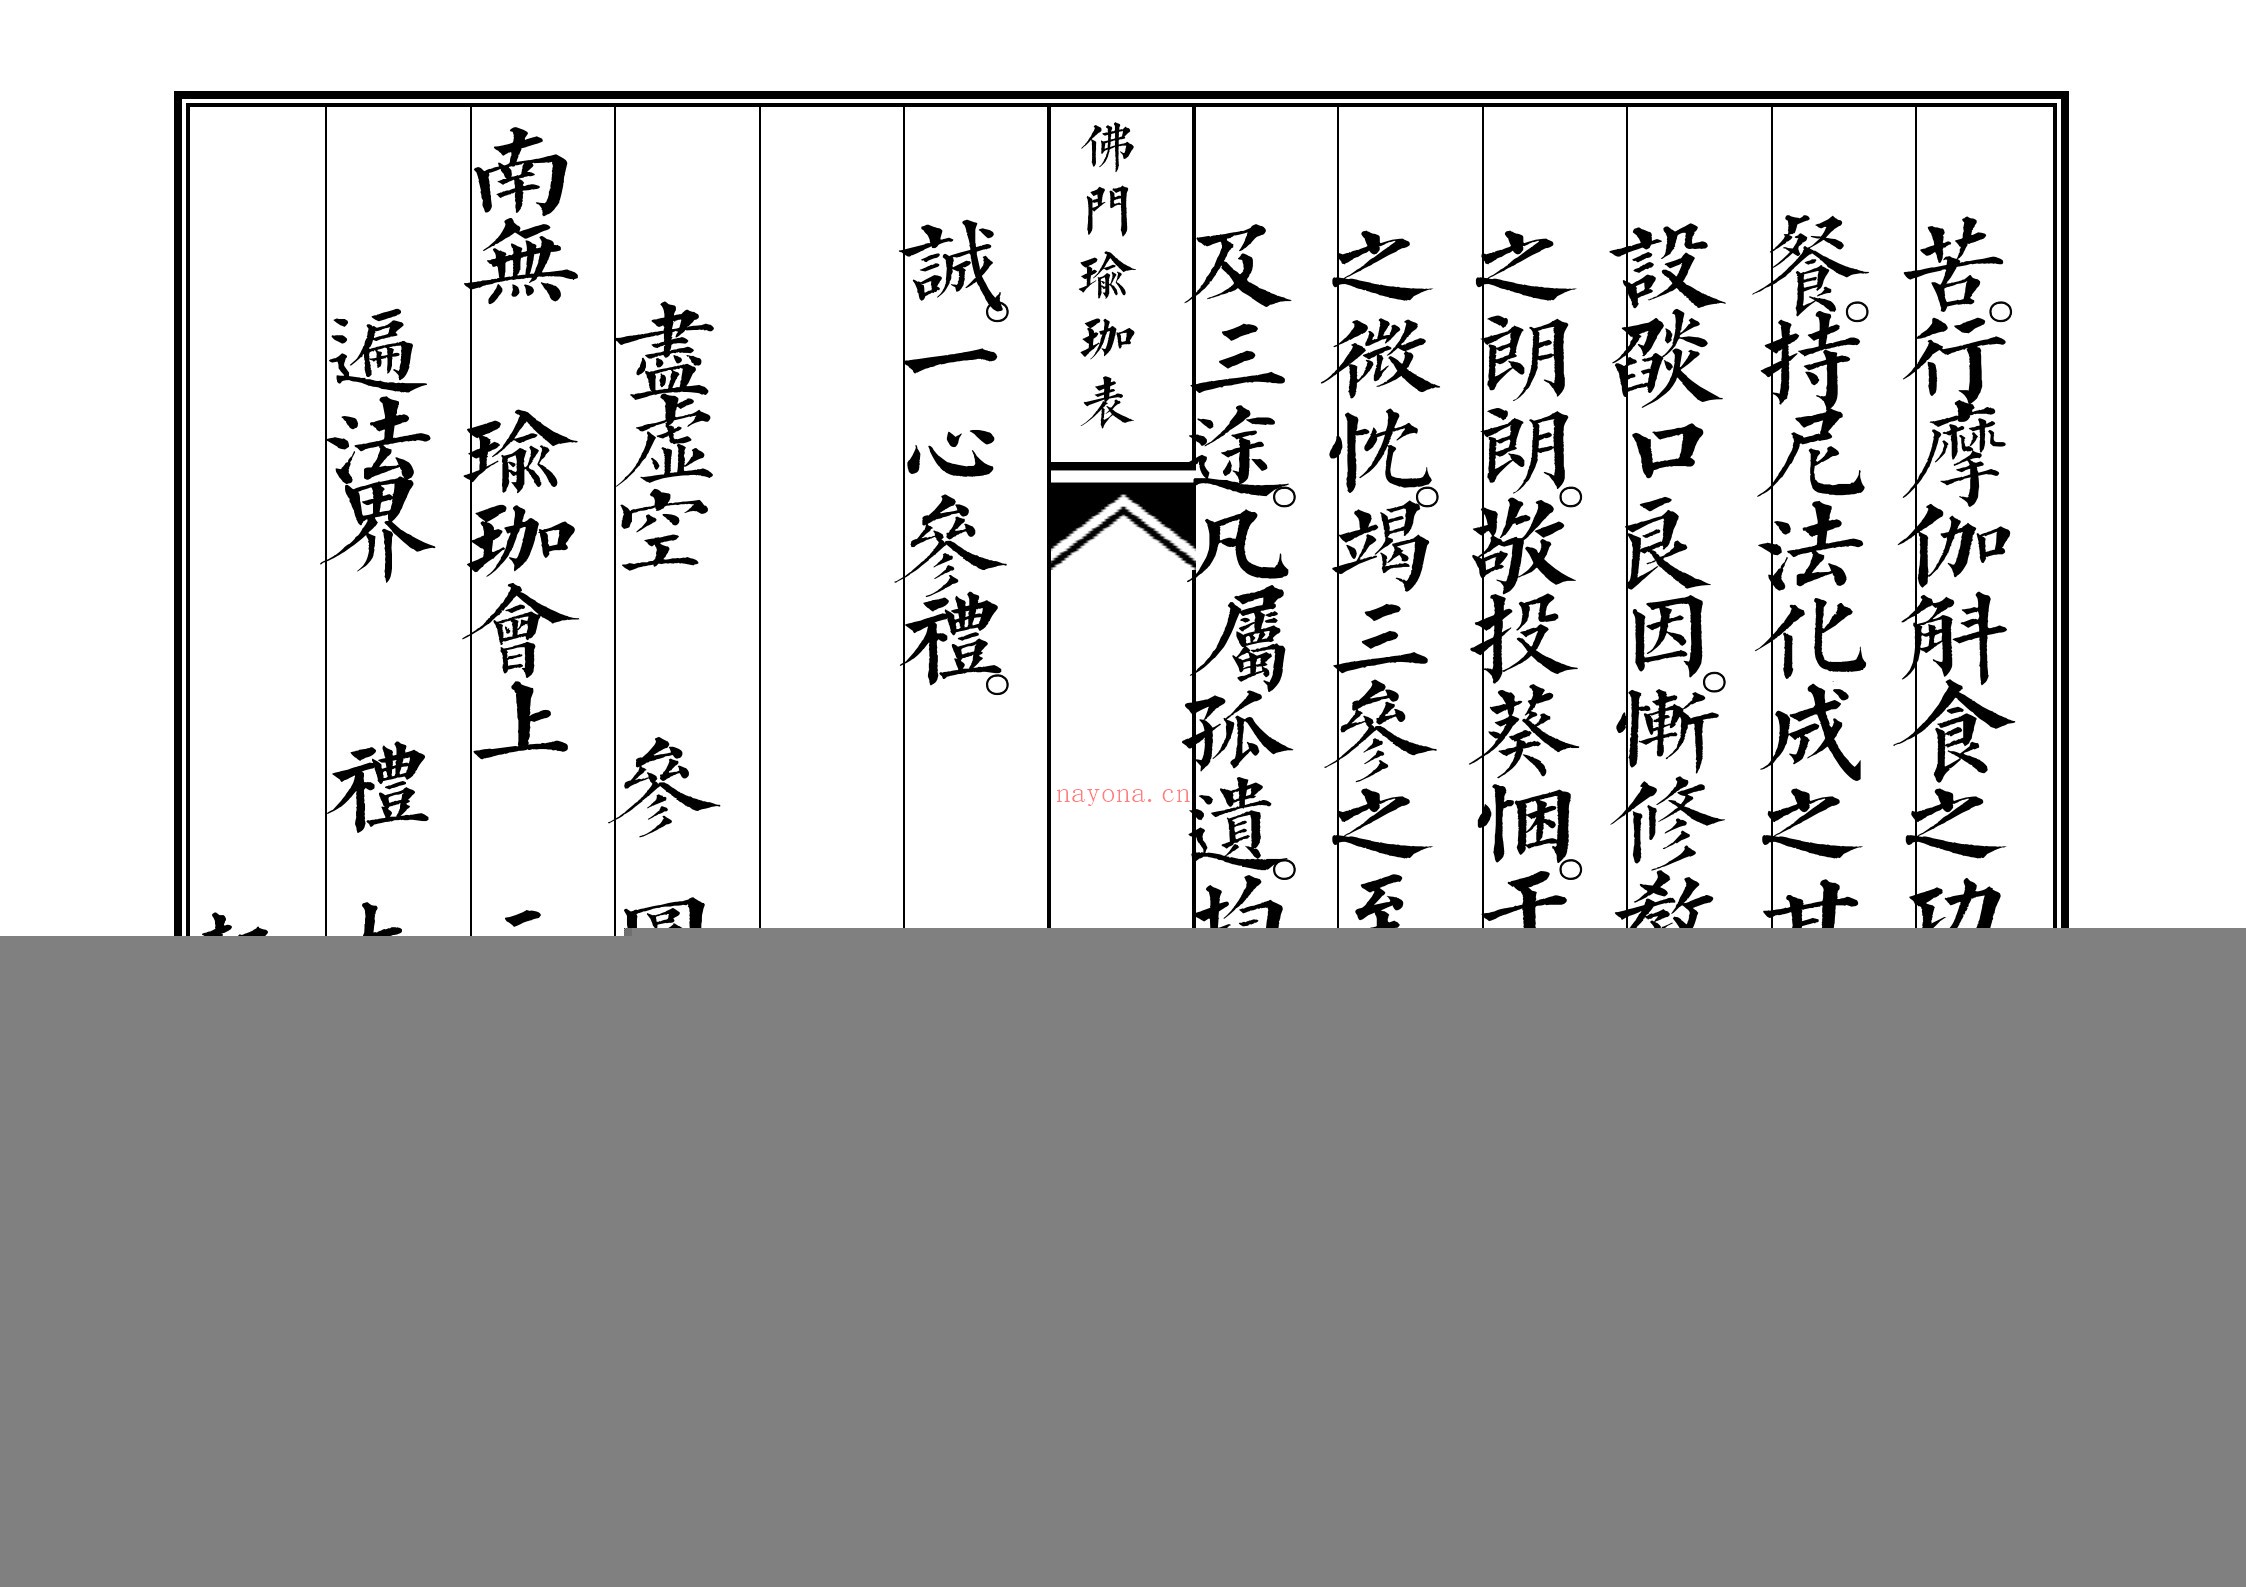 苦。行摩伽斛食之功
餐。持尼法化成之甘
設燄口良因。慚修教
之朗朗。敬投葵悃。干
之微忱。竭三參之至
及三途。凡屬孤遺。均
佛門瑜珈表
nayona.cn
誠。一心參禮。
盡虛空 參 圓
南無 瑜珈會上 三
遍法界 禮